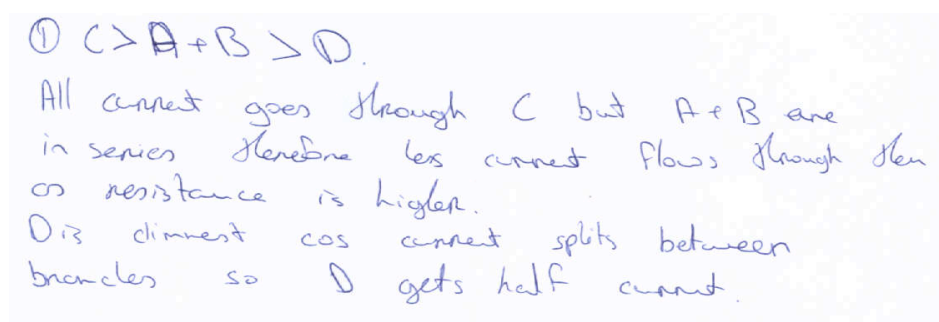 ① C > A + B > D.
All current goes through C but A + B are
in series therefore less current flows through them
as resistance is higher.
D is dimmest cos current splits between
branches so D gets half current.